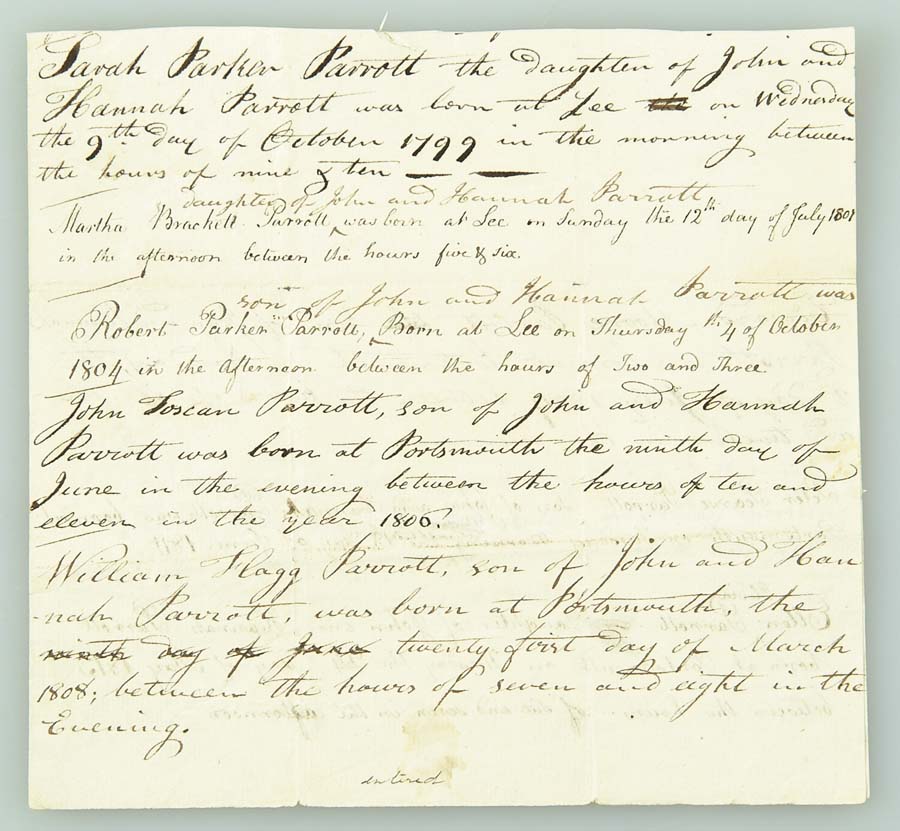 Sarah Parker Parrott the daughter of John and
Hannah Parrott was born at Lee the on Wednesday
the 9th day of October 1799 in the morning between
the hours of nine & ten — —
daughter of John and Hannah Parrott
Martha Brackett Parrott ‸ was born at Lee on Sunday the 12th day of July 1801
in the afternoon between the hours five & six.
son of John and Hannah Parrott was
Robert Parker Parrott, ‸ Born at Lee on Thursday th 4 of October
1804 in the Afternoon between the hours of Two and Three
John Toscan Parrott, son of John and Hannah
Parrott was born at Portsmouth the ninth day of
June in the evening between the hours of ten and
eleven in the year 1806.
William Flagg Parrott, son of John and Han
-nah Parrott, was born at Portsmouth, the
ninth day of June twenty first day of March
1808; between the hours of seven and eight in the
Evening.
entered